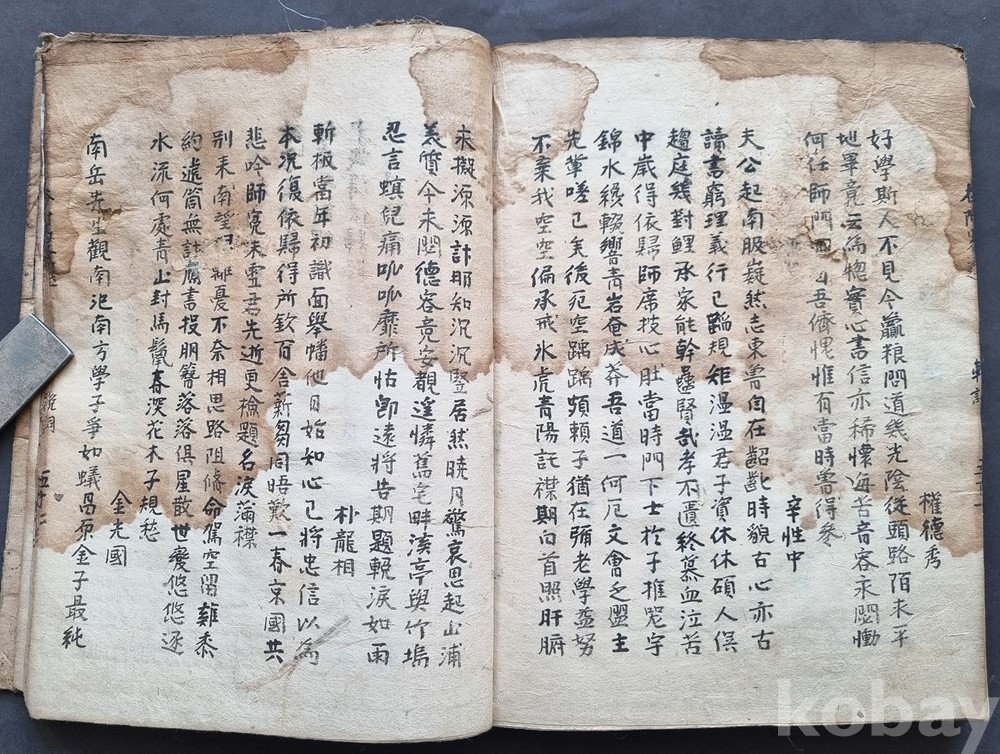 權德秀
好學斯人不見今贏粮問道幾光陰從頭路陌求平
地畢竟云爲揔實心書信亦稀懷每苦音容永閟慟
何任師門四吾儕愧惟有當時喾得參
辛性中
夫公起南服嶷然志東魯自在齠齔時貌古心亦古
讀書窮理義行己蹈規矩溫溫君子資休休碩人俣
趨庭幾對鯉承家能幹蠱賢哉孝不匱終慕血泣苦
中歲得依歸師席披心肚當時門下士於子推咒宇
錦水緩轡響靑岩奄成莽吾道一何厄文會乏盟主
先輩嗟已矣後死空踽踽頗賴子猶在彌老學益努
不棄我空空偏承戒水虎靑陽託襟期白首照肝腑
未擬源源訃耶知沉沉竪居然曉月驚哀思起山浦
美質今來閟德容竟安覩遙憐舊宅畔溪亭與竹塢
忍言螟兒痛呱呱靡所怙卽遠將告期題輓淚如雨
朴龍相
斬板當年初識面擧幡他日始知心已將忠信以爲
本況復依歸得所欽百舍薪芻同晤歎一春京國共
悲吟師寃未雪君先逝更檢題名淚滿襟
別來南望鄕憂不奈相思路阻脩命駕空留雞黍
約遞筒無計鴈書投朋簪落落俱星散世變悠悠逐
水流何處靑山封馬鬣春深花木子規愁
金光國
南岳先生觀南汜南方學子爭如蟻昌原金子最純
五十二